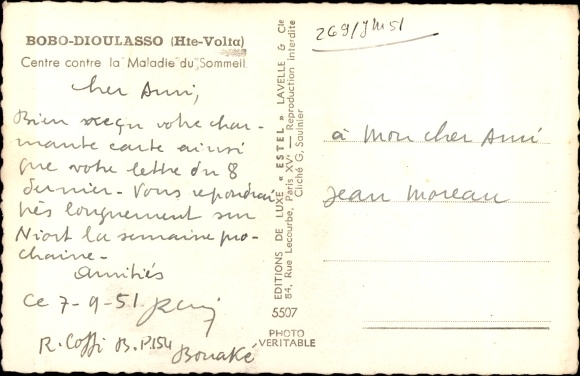 BOBO-DIOULASSO (Hte-Volta)
Centre contre la Maladie du Sommeil
Cher Ami,
Bien reçu votre char-
mante carte ainsi
que votre lettre du 8
dernier - Vous repondrai
très longuement sur
Niort la semaine pro-
chaine -
Amitiés
Ce 7-9-51
R. Coffi B.P.154
Bouaké
EDITIONS DE LUXE « ESTEL » LAVELLE & Cie
84, Rue Lecourbe, Paris XVe — Reproduction interdite
Cliché G. Saulnier
5507
PHOTO
VERITABLE
269/JM51
à Mon cher Ami
Jean Moreau